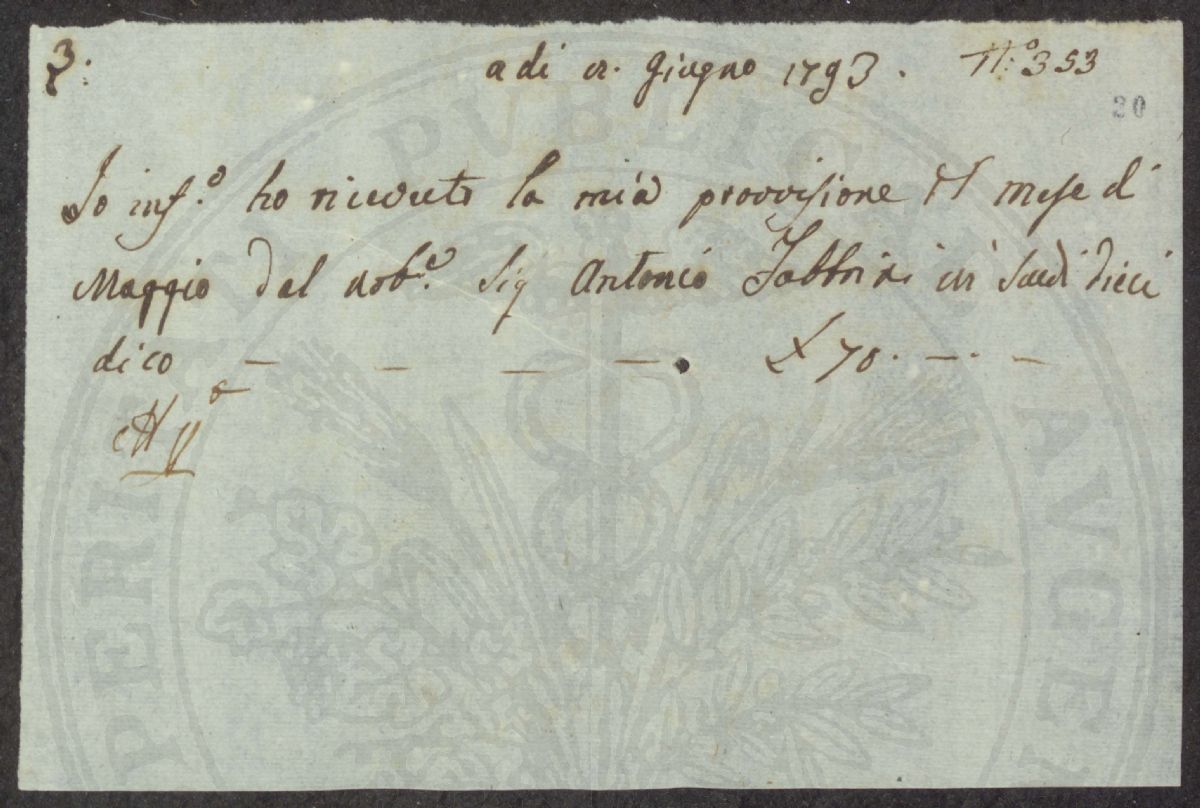 3.
a di Giugno 1793. N.° 353
20
Io inf.° ho riceuuto la mia provvisione mese di
Maggio del nob.e Sig Antonio Fabbrini in scudi dieci
dico — — — — £ 70. —. —